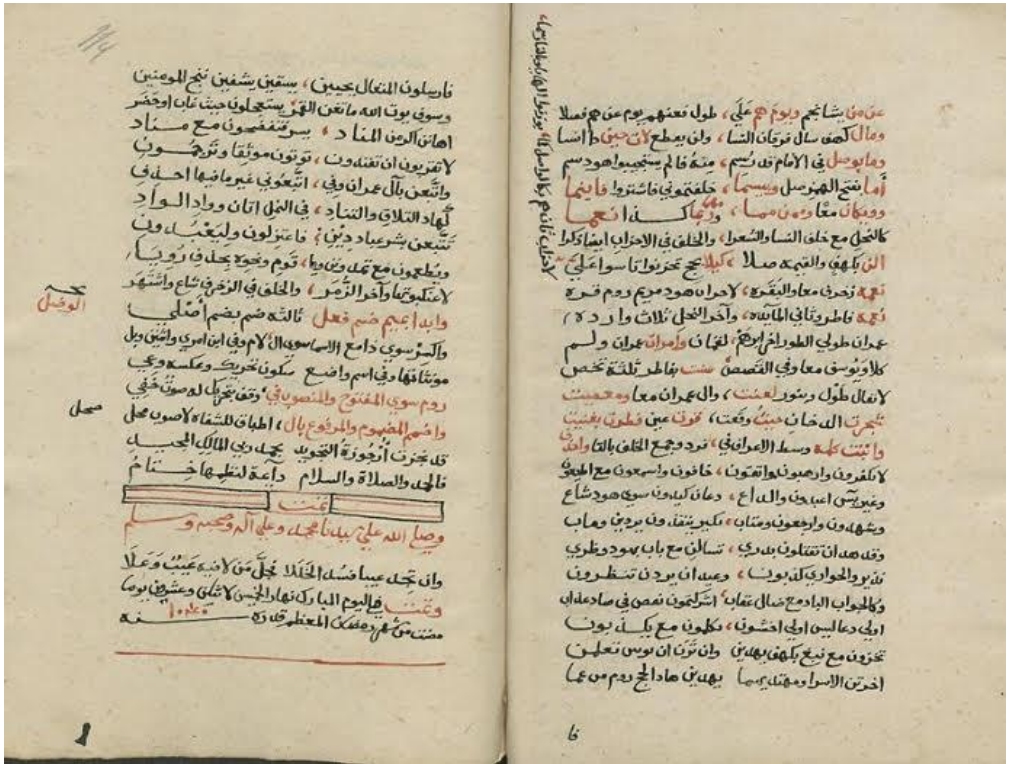 عن من يشا نجم ويوم هم علي، طول فعنهم يوم عن هم فصلا
ومال كهف سال فرقان النسا، ولن يعطع لات حين
وما يوصل في الامام قد رسم، مئة فالم يستجيبوا هود سم
أما بفتح الهمز صل وبيسما، خلفتموني فاشتروا فاينما
وويكان معا ومن مما، وربما كذا نعما
كالنحل مع خلف النسا والشعرا، والخلف في الاحزاب ايضا ذكرا
الن بكهف والقيمه صلا، كيلا بحج تحزنوا تاسوا علي
نعمه زخرف معا والبقره، لاحزاب هود مريم روم قره
نعمه فاطر وثاني المايده، وآخر النحل ثلاث وارده
عمران طولي الطور اخر ابرهم، لقمان وامرات عمران ولم
كلا ويوسف معا وفي القصص، سنت بفاطر ثلثة تخص
لانفال طول ونور لعنت، وال عمران معا ومعصيت
شجرت الدخان حيث وقعت، قرت عين فطرت بقيت
وابنت كلمه وسط الاعراف في، فرد وجمع الخلف بالتا
لا تكفرون وارهبون واتقون، خافون واسمعون مع اطيعون
وغير يس اعبدون والداع، دعان كيدون سوي هود شاع
ويشهدون وارجعون ومتاب، نكير ينقذون يردين وماب
وقد هدان تقتلون بدري، تسالن مع باب بهود
نذير والجواري كذبونا، وعيد ان يردن تنظرون
وكالجواب الباد مع ضال عقاب، اشركتمون
اولي دعا ليس اولي اخشون، تكلمون مع يكذبونا
تخزون مع نبغ بكهف يهدين وان ترن ان يوتين تعلمن
اخرتن الاسرا ومهتد بهما يهدين هاد الحج روم
فا
فارسلون المتعال يحيين، يسقين يشفين ننج المومنين
وسوف يوت الله ما تغن القمر، يستعجلون حيث غاب او حضر
اهانن اكرمن المناد، يسر تفضحون مع مناد
لا تقربون ان تفندون، توتون موثقا وترجمون
واتبعن بآل عمران وفي، اتبعوني غير ما فيها احذف
كهاد التلاق والتناد، في النمل اتان وواد الواد
تتبعن بشر عباد دين، فاعتزلون وليعبدون
ويطعمون مع
لاعنكبوتها وآخر الزمر، والخلف في الزخرف شاع واشتهر
وابدا بميم ضم فعل ثالثه ضم بضم أصلي
واكسر سوي ذا مع الاسما سوي ال لام وفي ابن امري واثنين
مونثاتها وفي اسم واضع سكون تحريك وعكسه
روم سوي المفتوح والمنصوب في وقف بتحريك له صوت خفي
واضمم المضموم والمرفوع بال، اطباق للشفاه لا صوت محل
قد نجزت أرجوزة التجويد بحمد ربي المالك المجيد
فالحمد والصلاة والسلام داعة لنظمها ختام
تمت
وصلي الله علي سيدنا محمد وعلي آله وصحبه وسلم
وان تجد عيبا فسد الخللا فجل من لا فيه عيب وعلا
وتمت في اليوم المبارك نهار الخميس لاثنين وعشرين يوما
مضت من شهر رمضان المعظم قدره سنه